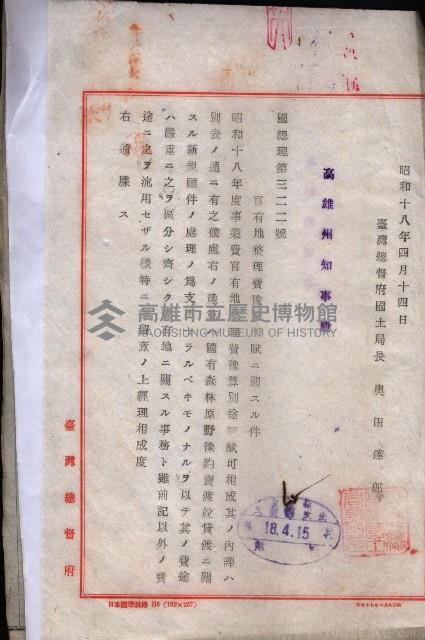 昭和十八年四月十四日
臺灣總督府國土局長 奥田達郎
高雄州知事殿
國總理第三二二號
官有地整理費豫 賦ニ關スル件
昭和十八年度事業費官有地 理費豫算別途 賦可相成其ノ內譯ハ
別表ノ通ニ有之候處右ノ 國有森林原野豫約賣渡並貸渡ニ關
スル新規願件ノ處理ノ爲支 ラルベキモノナルヲ以テ其ノ費途
ハ嚴重ニ之ヲ區分シ齊シク 有地ニ關スル事務ト雖前記以外ノ費
途ニ之ヲ流用セザル樣特ニ 意ノ上經理相成度
右通牒ス
臺灣總督府
18.4.15
高雄市立歷史博物館
KAOHSIUNG MUSEUM OF HISTORY
日本標準規格 B5 (182×257)